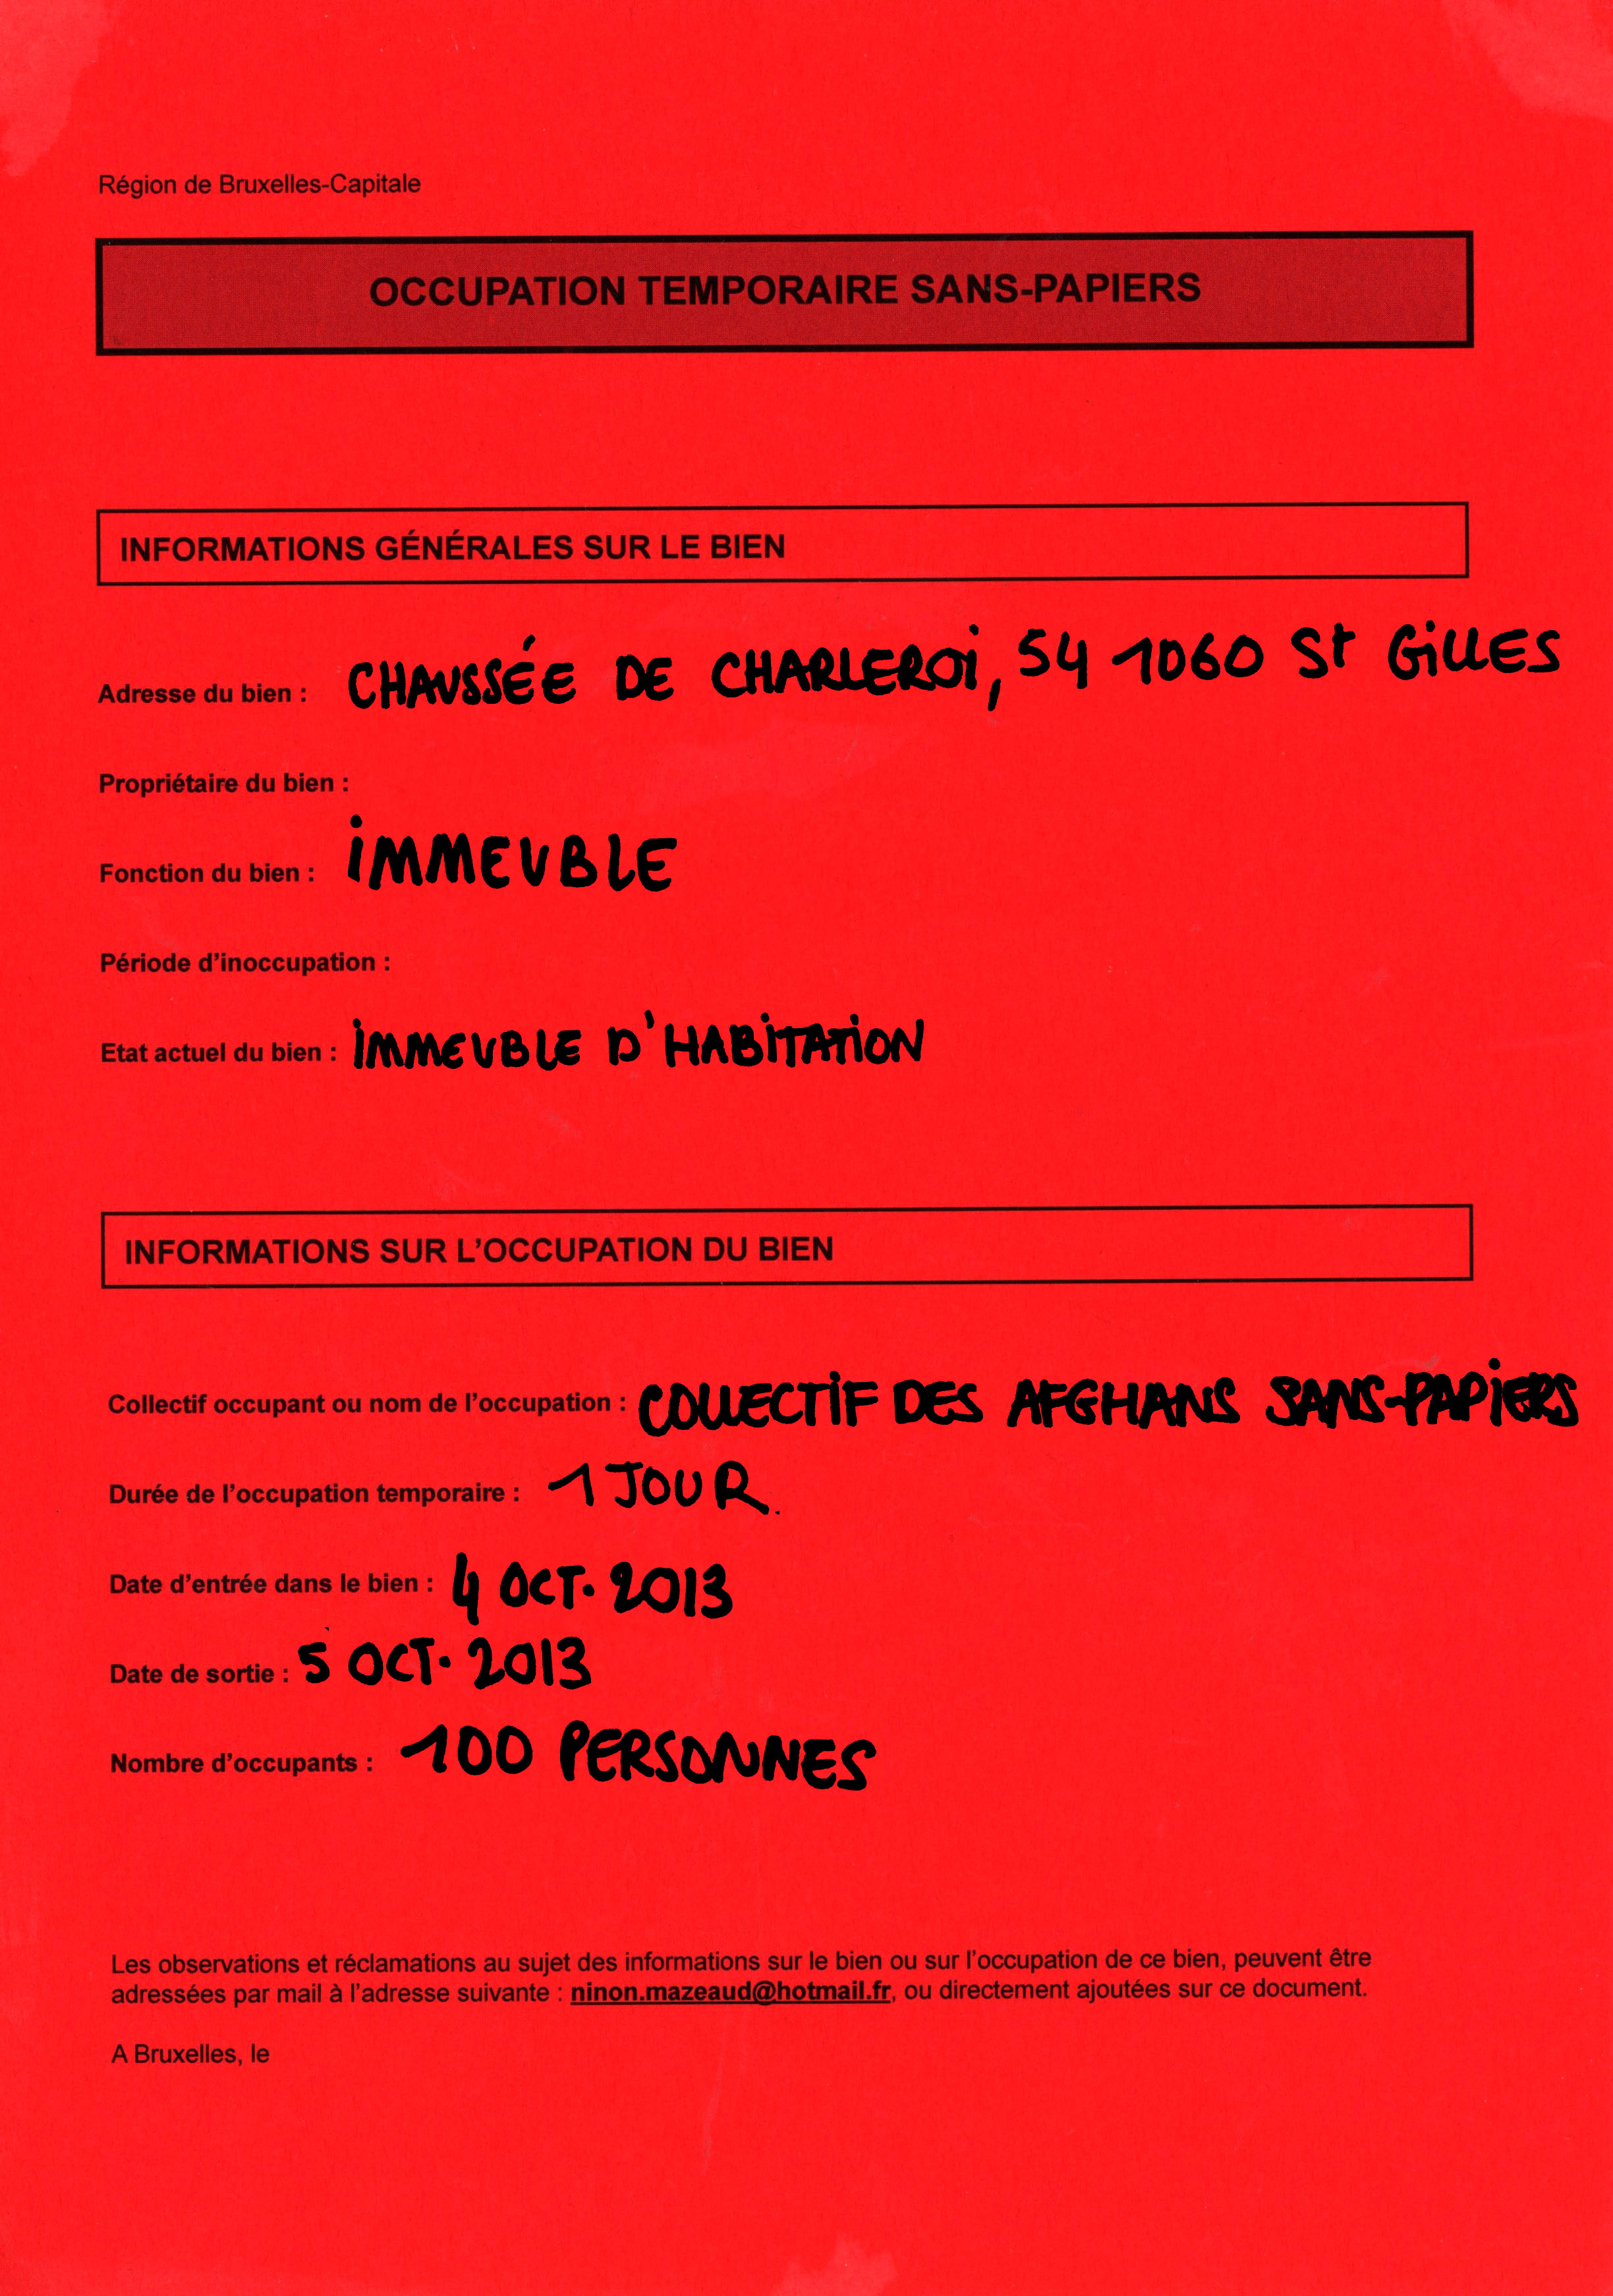 Région de Bruxelles-Capitale
OCCUPATION TEMPORAIRE SANS-PAPIERS
INFORMATIONS GÉNÉRALES SUR LE BIEN
Adresse du bien : CHAUSSÉE DE CHARLEROI, 54 1060 St GILLES
Propriétaire du bien :
Fonction du bien : IMMEUBLE
Période d'inoccupation :
Etat actuel du bien : IMMEUBLE D'HABITATION
INFORMATIONS SUR L'OCCUPATION DU BIEN
Collectif occupant ou nom de l'occupation : COLLECTIF DES AFGHANS SANS-PAPIERS
Durée de l'occupation temporaire : 1 JOUR.
Date d'entrée dans le bien : 4 OCT. 2013
Date de sortie : 5 OCT. 2013
Nombre d'occupants : 100 PERSONNES
Les observations et réclamations au sujet des informations sur le bien ou sur l'occupation de ce bien, peuvent être
adressées par mail à l'adresse suivante : ninon.mazeaud@hotmail.fr, ou directement ajoutées sur ce document.
A Bruxelles, le